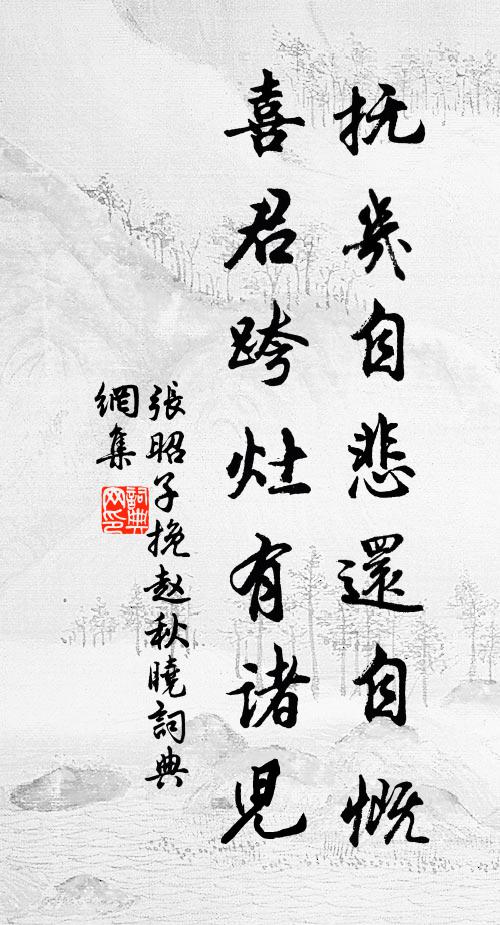 抚几自悲還自慨
喜君跨灶有诸児
張昭子挽赵秋曉詞典
網集
詞典网印